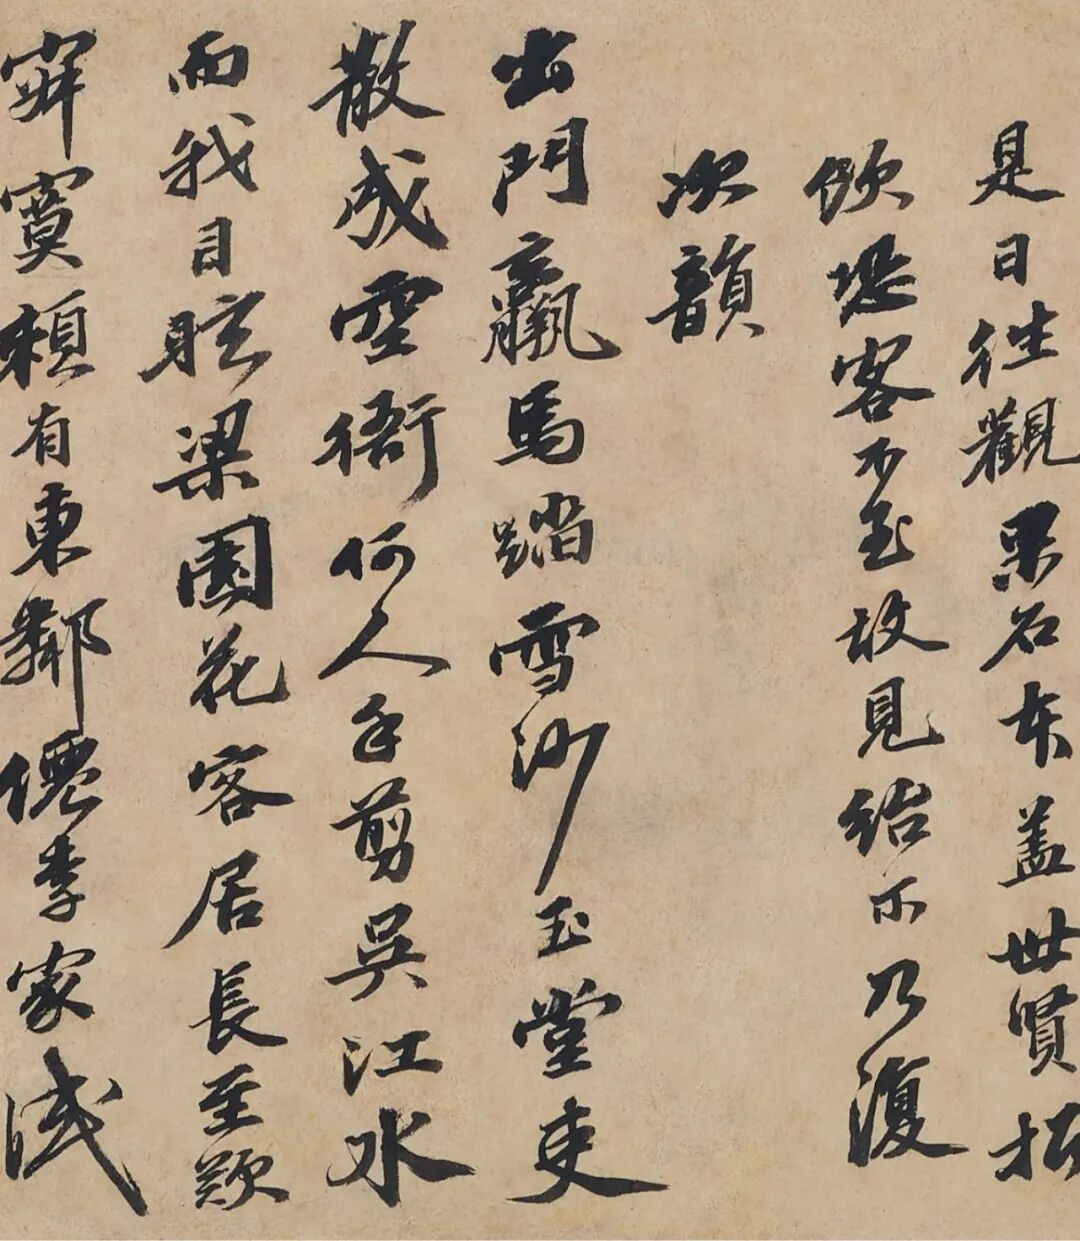 是日往觀果石本盖世賢招
飲恐客不至故見紿尔乃復
次韻
出門羸馬踏雪沙玉堂吏
散成空衙何人手剪吳江水
而我目眩梁園花客居長至歎
寂寞賴有東鄰僊李家淺